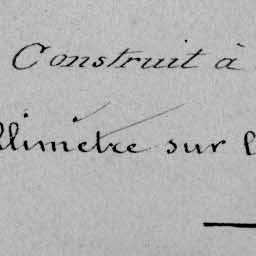 Construit à
llimètre sur l